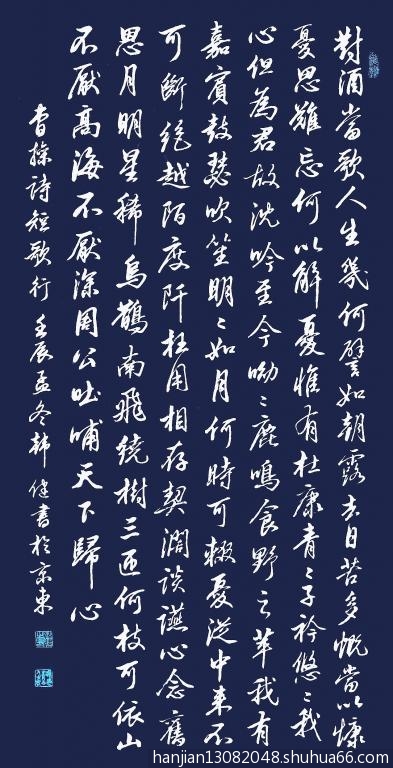 對酒當歌人生幾何譬如朝露去日苦多慨當以慷
憂思難忘何以解憂惟有杜康青〻子衿悠〻我
心但為君故沈吟至今呦〻鹿鳴食野之苹我有
嘉賓鼓瑟吹笙明〻如月何時可輟憂從中來不
可斷絕越陌度阡枉用相存契濶談讌心念舊
恩月明星稀烏鵲南飛繞樹三匝何枝可依山
不厭高海不厭深周公吐哺天下歸心
曹操詩短歌行 壬辰孟冬韓健書於京東
hanjian13082048.shuhua66.com